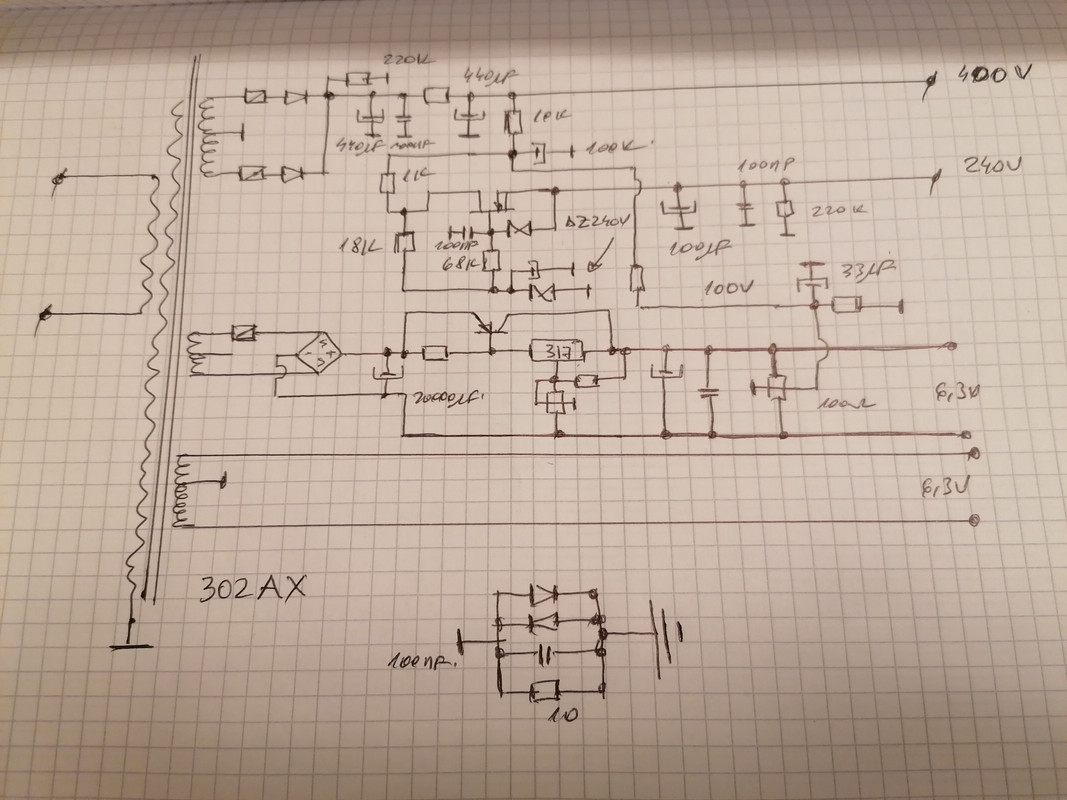 220K
440µF
400V
440µF 100nF
10K
100K.
100nF
240V
1K
ΔZ240V
220K
18K
100nF
68K
100µF
33µF
100V
317
20000µF.
100Ω
6,3V
6,3V
302AX
100nF.
10